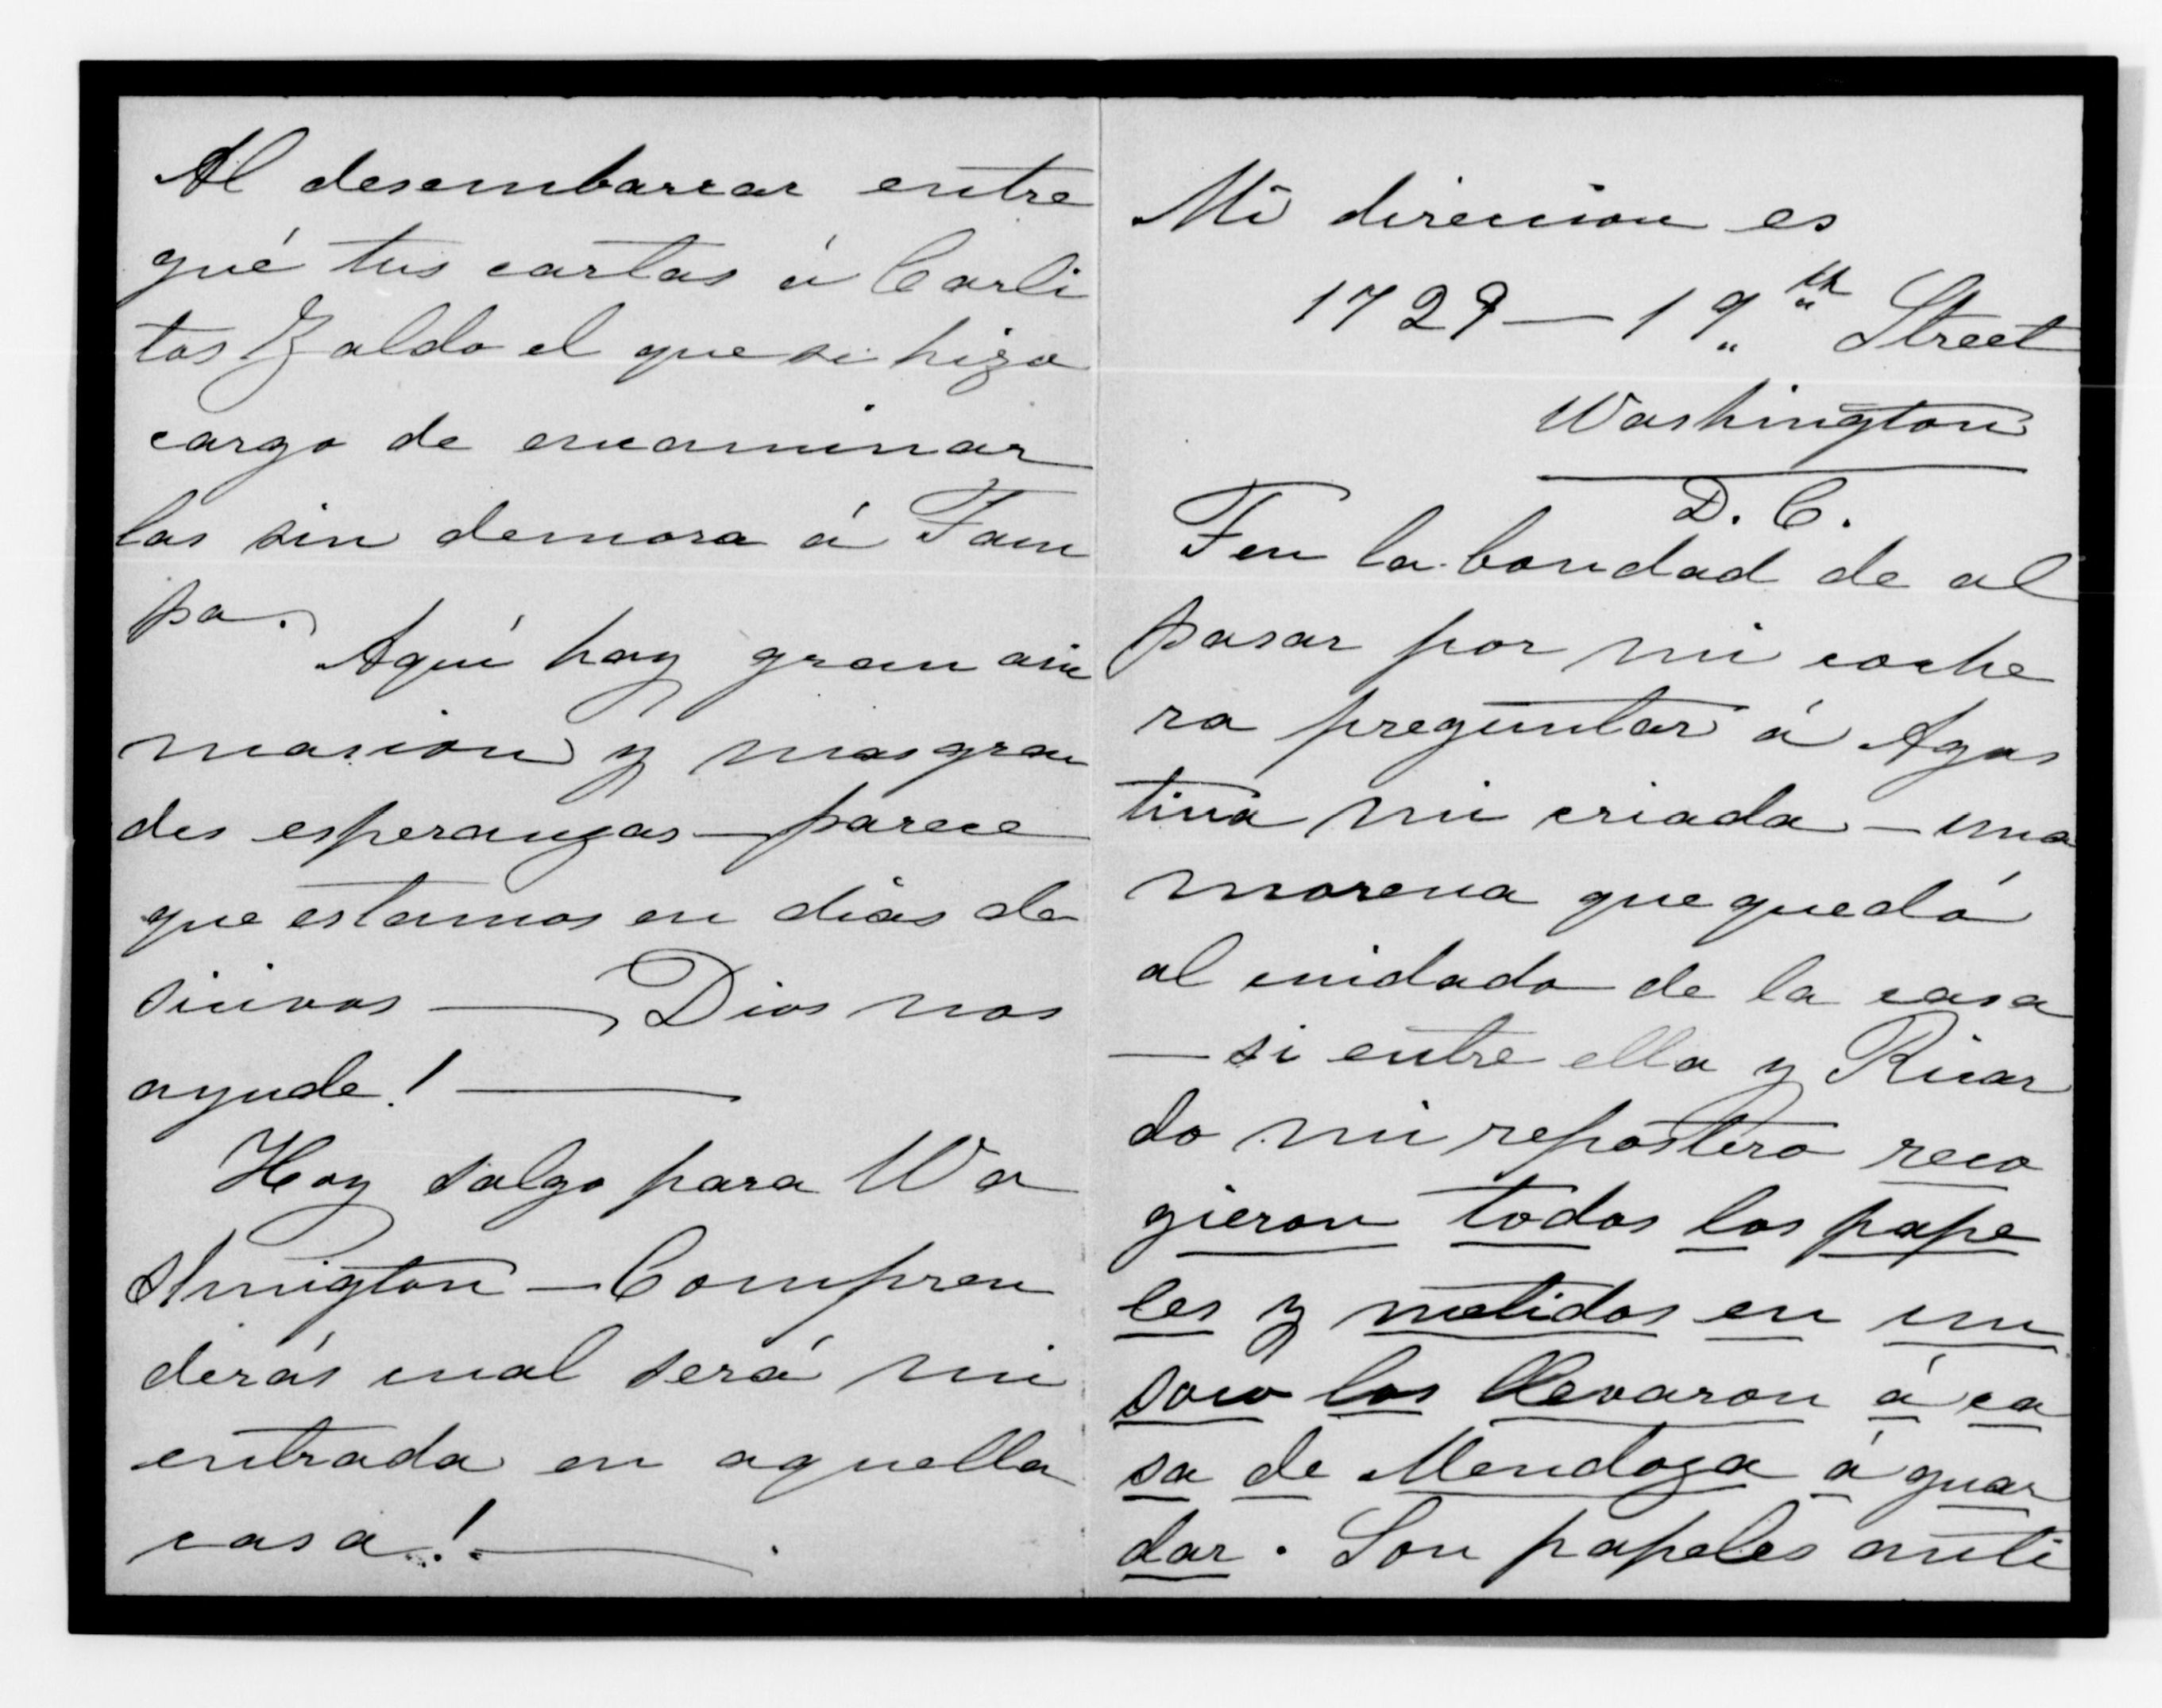 Al desembarcar entre
gué tus cartas á Carli
tos Zaldo el que se hizo
cargo de encaminar
las sin demora á Tam
pa.
Aquí hay gran ani
macion y mas gran
des esperanzas — parece
que estamos en dias de
cicivos — Dios nos
ayude! —
Hoy salgo para Wa
shington — Compren
derás cual será mi
entrada en aquella
casa! — .
Mi direccion es
1729 — 19th Street
Washington
D. C.
Ten la bondad de al
pasar por mi coche
ra preguntar á Agus
tina mi criada — una
morena que quedó
al cuidado de la casa
— si entre ella y Ricar
do mi repostero reco
gieron todos los pape
les y metidos en un
saco los llevaron á ca
sa de Mendoza á guar
dar. Son papeles anti